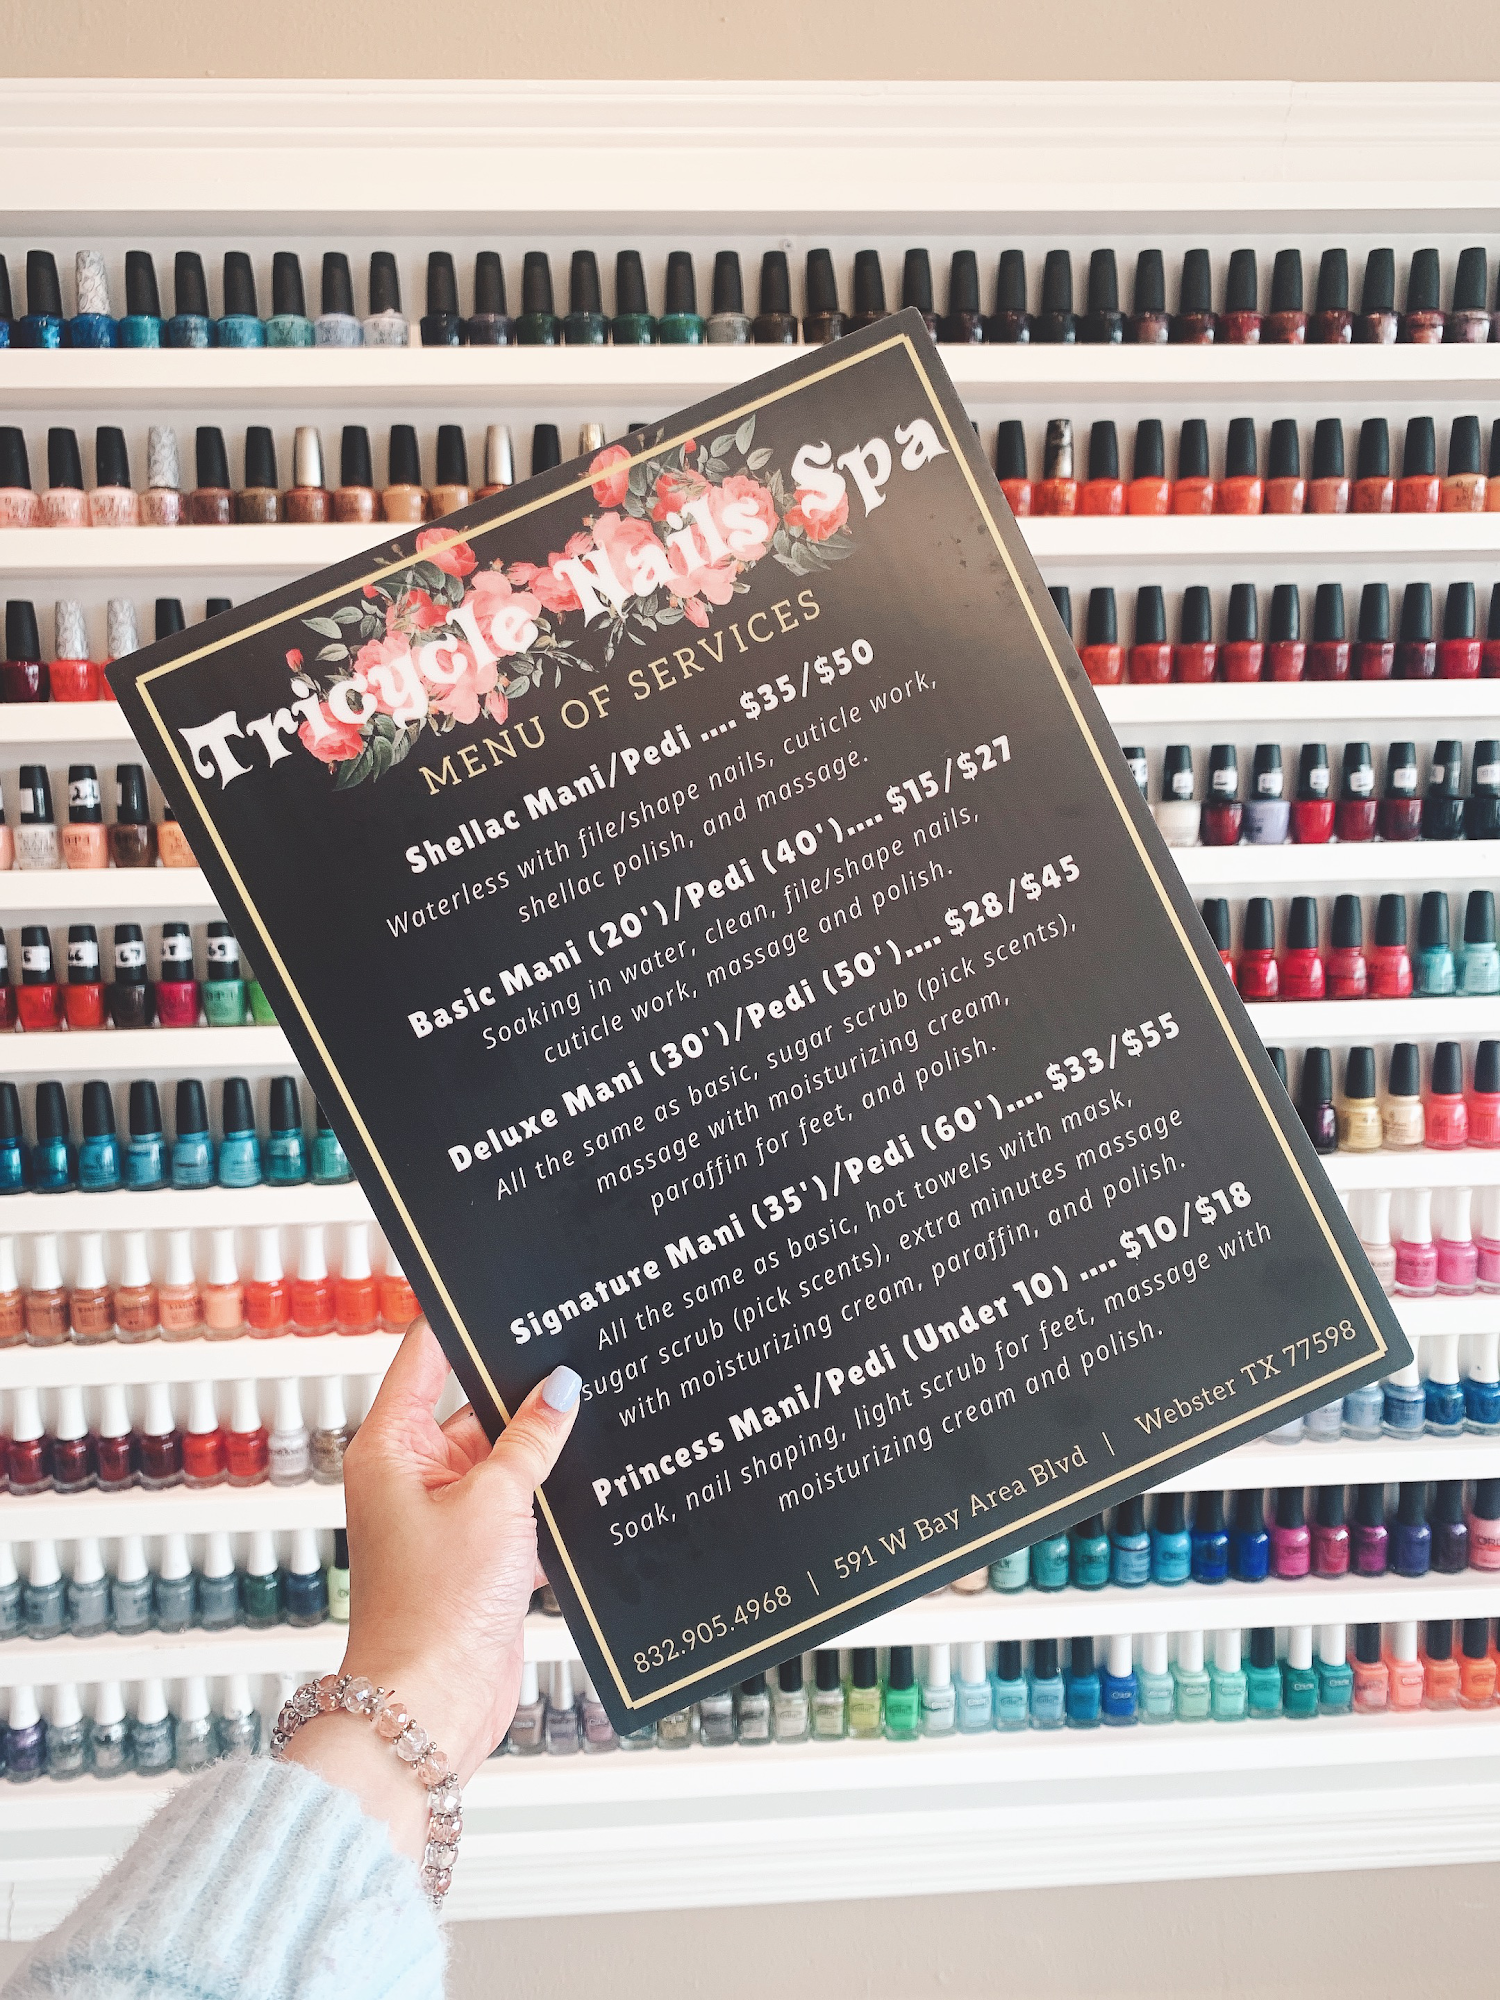 Tricycle Nails Spa
MENU OF SERVICES
Shellac Mani/Pedi .... $35/$50
Waterless with file/shape nails, cuticle work,
shellac polish, and massage.
Basic Mani (20')/Pedi (40').... $15/$27
Soaking in water, clean, file/shape nails,
cuticle work, massage and polish.
Deluxe Mani (30')/Pedi (50').... $28/$45
All the same as basic, sugar scrub (pick scents),
massage with moisturizing cream,
paraffin for feet, and polish.
Signature Mani (35')/Pedi (60').... $33/$55
All the same as basic, hot towels with mask,
sugar scrub (pick scents), extra minutes massage
with moisturizing cream, paraffin, and polish.
Princess Mani/Pedi (Under 10) .... $10/$18
Soak, nail shaping, light scrub for feet, massage with
moisturizing cream and polish.
832.905.4968 | 591 W Bay Area Blvd | Webster TX 77598